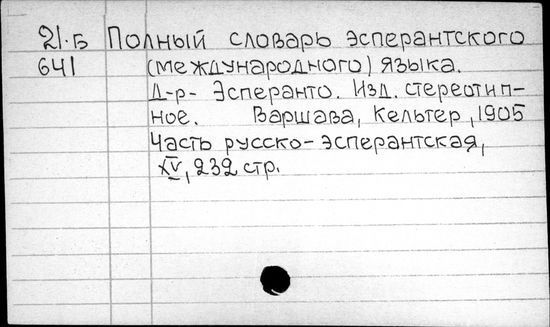 21.Б Полный словарь эсперантского
641 (международного) языка.
Д-р- Эсперанто. Изд. стереотип-
ное. Варшава, Кельтер, 1905
Часть русско-эсперантская,
XV, 232 стр.